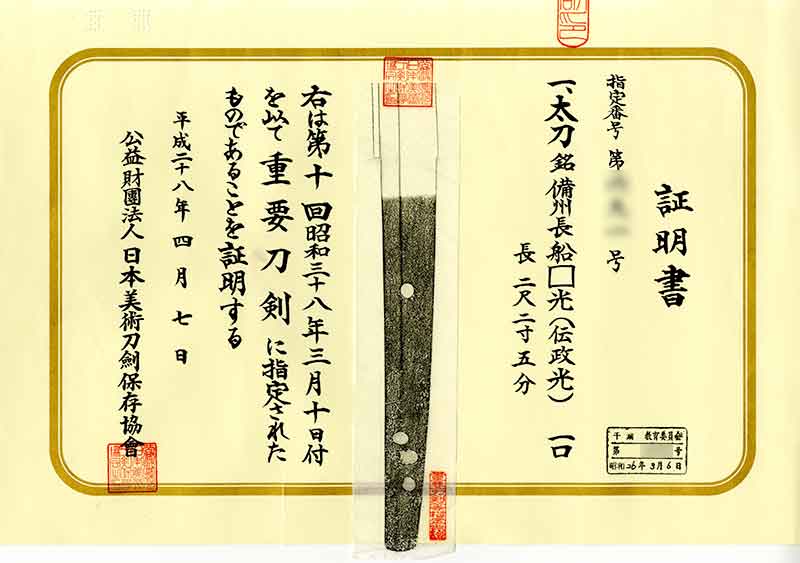 証明書
指定番号 第 号
一、太刀 銘 備州長船□光(伝政光) 一口
長 二尺二寸五分
右は第十回昭和三十八年三月十日付
を以て重要刀剣に指定された
ものであることを証明する
平成二十八年四月七日
公益財團法人 日本美術刀劍保存協會
教育委員会
第 号
昭和26年3月6日